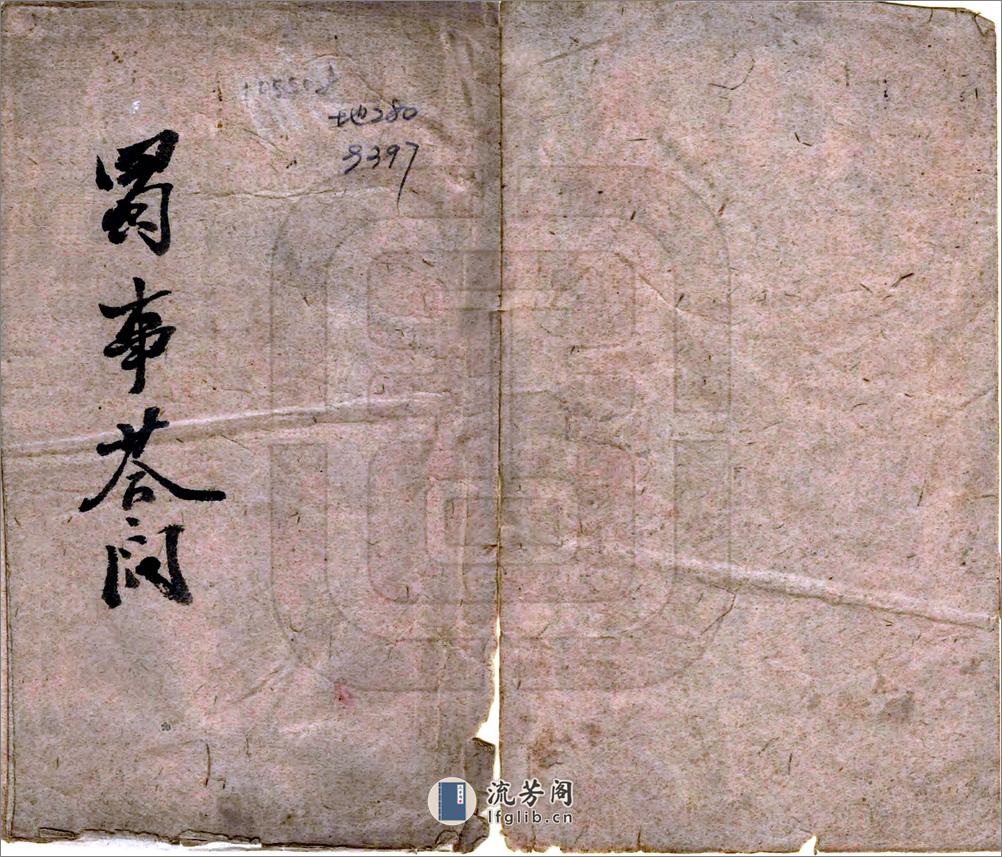 蜀事荅问
105508
地280
8397
流芳阁
lfglib.cn